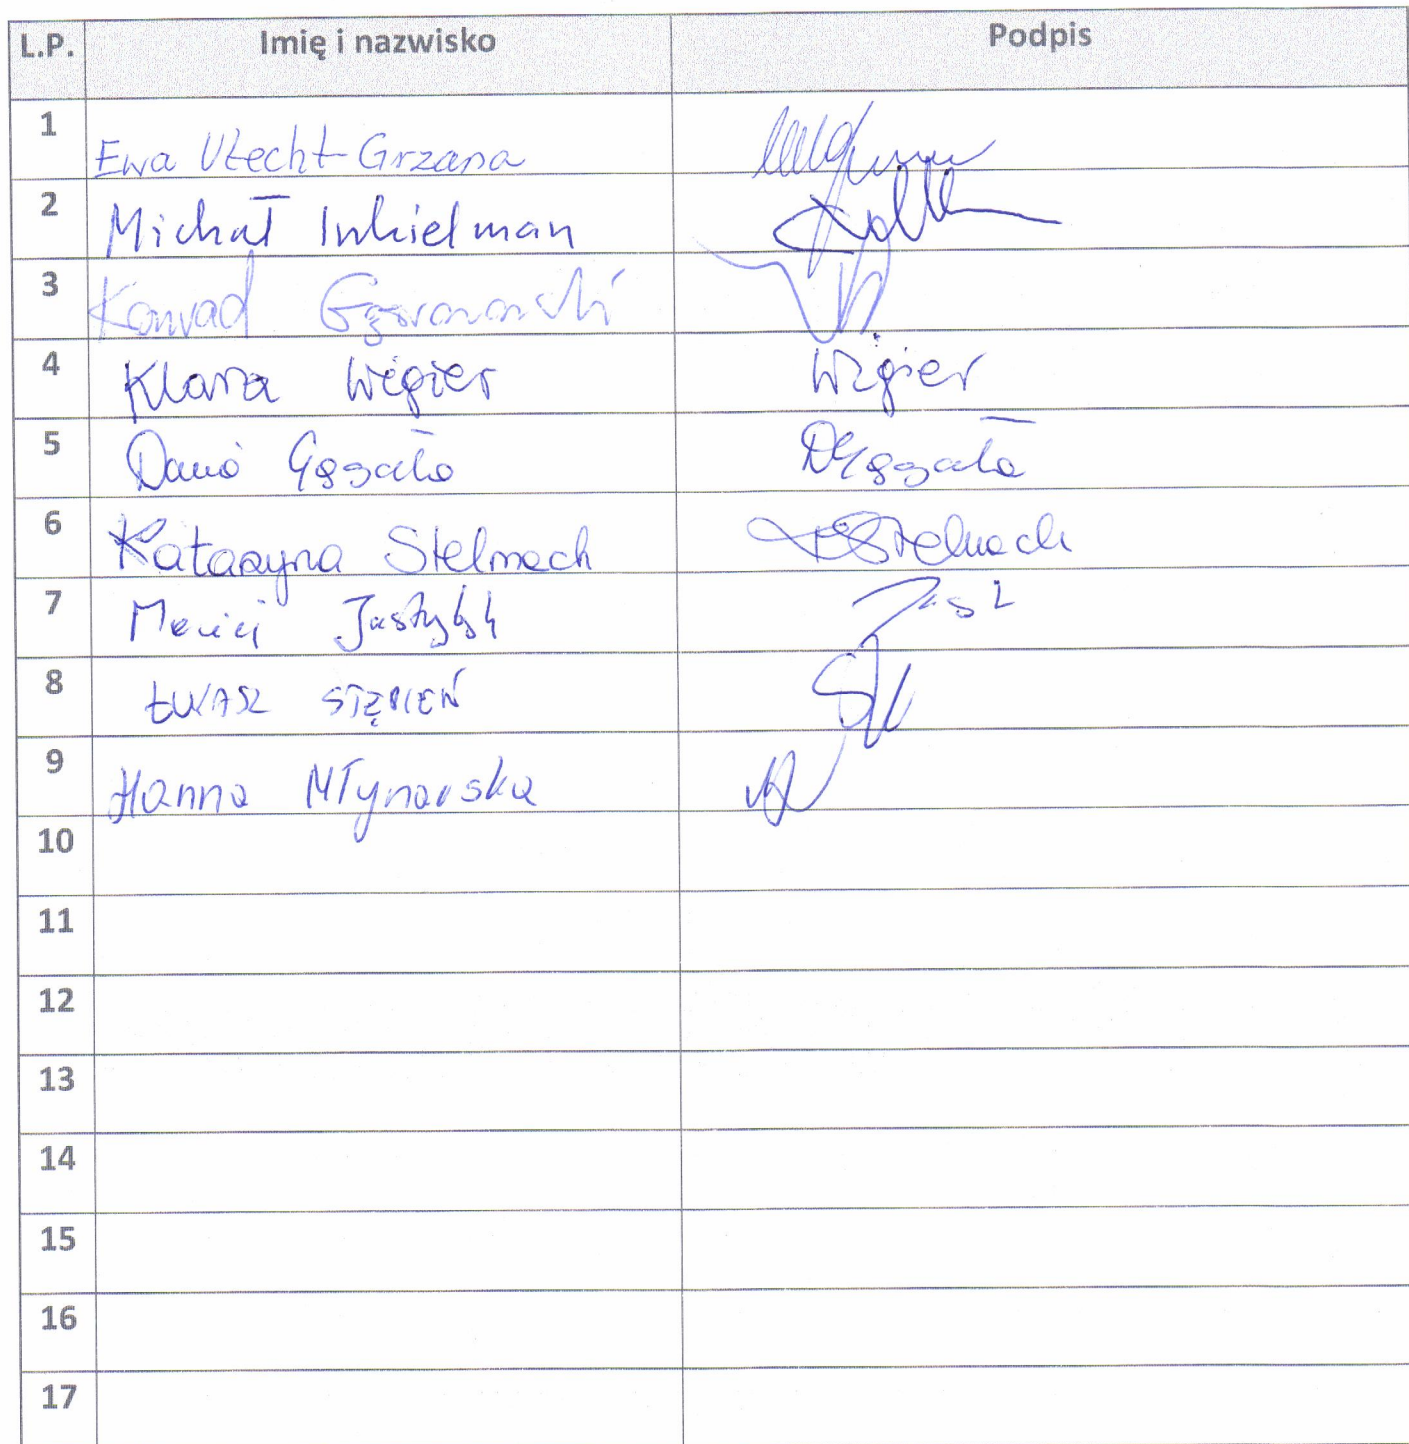 L.P. Imię i nazwisko Podpis
1 Ewa Utecht-Grzana
2 Michał Inkielman
3 Konrad
4 Klara Węgier Węgier
5
6 Katarzyna Stelmach KStelmach
7 Maciej
8 ŁUKASZ STĘPIEŃ
9 Hanna Młynarska
10
11
12
13
14
15
16
17